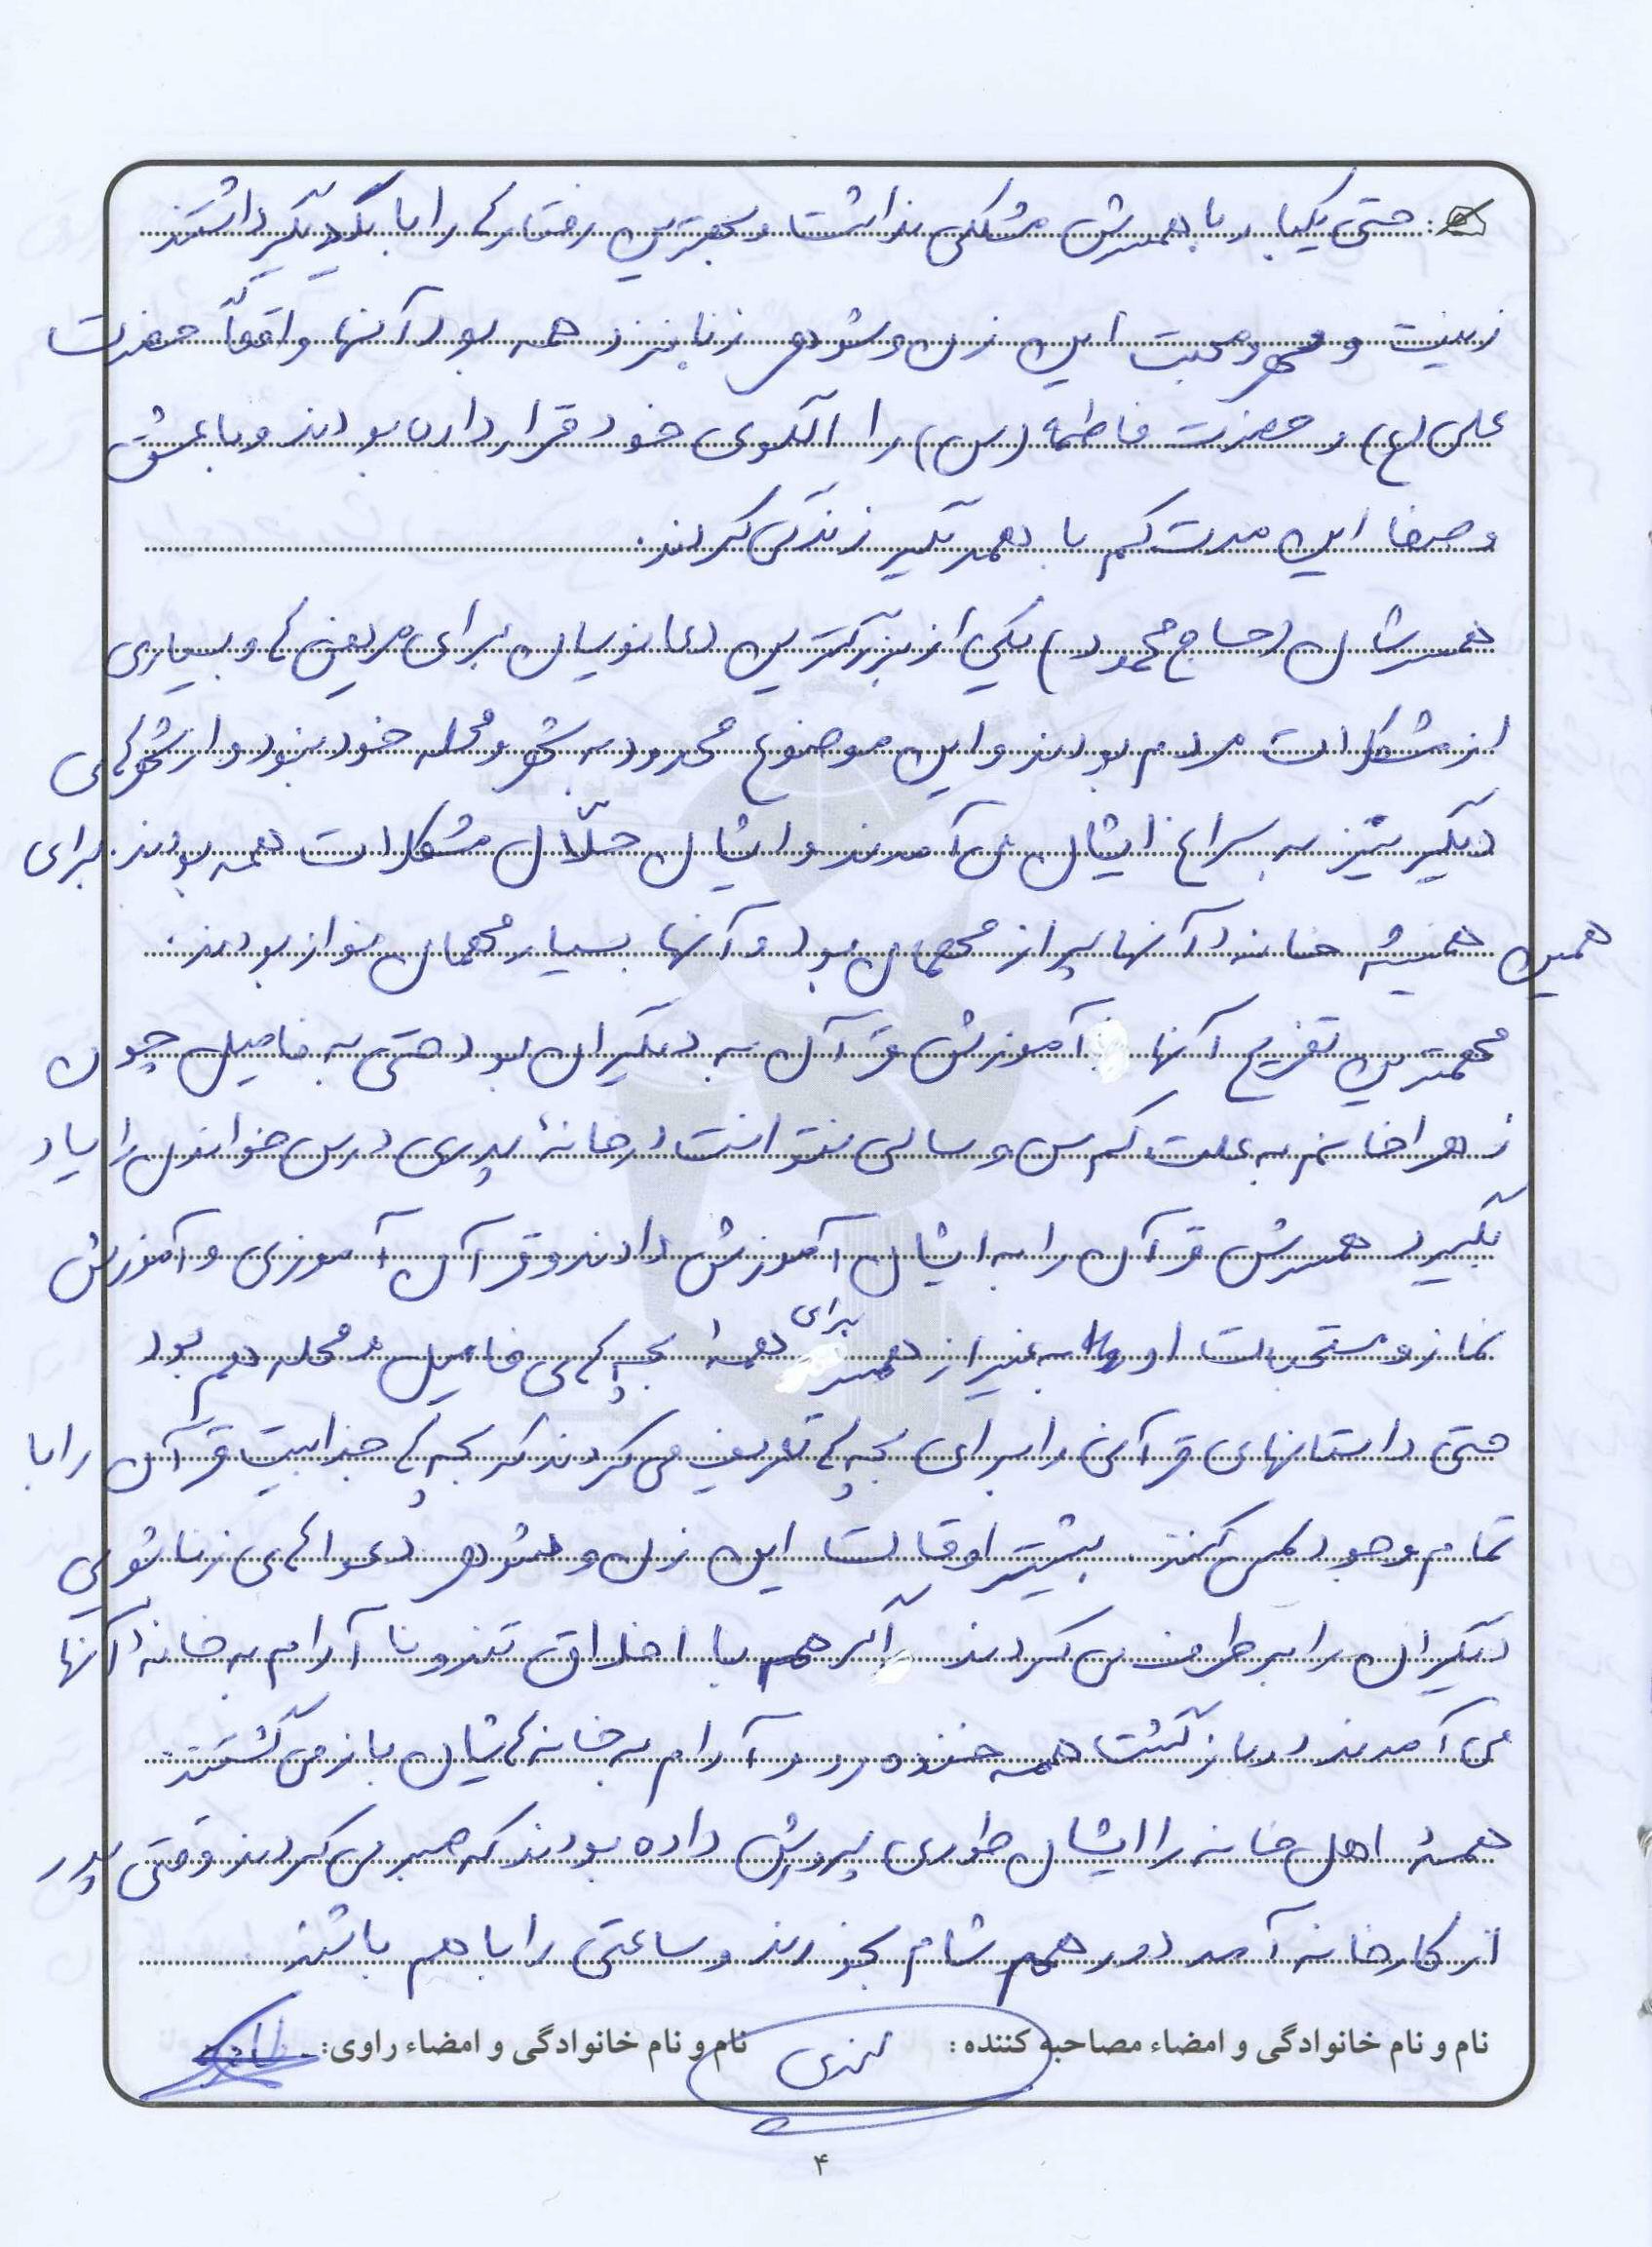 حتی یکبار با همسرش مشکلی نداشت و بهترین رفتارها را با یکدیگر داشتند
زینت و مهر و محبت این زن و شوهر زبانزد همه بود آنها واقعاً حضرت
علی (ع) و حضرت فاطمه (س) را الگوی خود قرار داده بودند و با عشق
و صفا این مدت کم با همدیگر زندگی کردند.
همسرشان (حاج محمود) یکی از بزرگترین دعانویسان برای مریض ها و بسیاری
از مشکلات مردم بودند و این موضوع محدود به شهر و محله خود نبود و از شهرهای
دیگر نیز به سراغ ایشان می آمدند و ایشان حلّال مشکلات همه بودند. برای
همین همیشه خانه آنها پر از مهمان بود و آنها بسیار مهمان نواز بودند.
مهمترین تفریح آنها آموزش قرآن به دیگران بود حتی به فامیل چون
زهرا خانم به علت کم سن و سالی نتوانست در خانهٔ پدری درس خواندن را یاد
بگیرد همسرش قرآن را به ایشان آموزش دادند و قرآن آموزی و آموزش
نماز و مستحبات او به غیر از همسر برای همهٔ بچه های فامیل و محله هم بود
حتی داستانهای قرآنی را برای بچه ها تعریف می کردند که بچه ها جذابیت قرآن را با
تمام وجود لمس کنند. بیشتر اوقات این زن و شوهر دعواهای زناشویی
دیگران را برطرف می کردند اگر هم با اخلاق تند و ناآرام به خانهٔ آنها
می آمدند در بازگشت همه خنده رو و آرام به خانه هایشان باز می گشتند.
همهٔ اهل خانه را ایشان طوری پرورش داده بودند که صبر می کردند وقتی پدر
از کارخانه آمد دور هم شام بخورند و ساعتی را با هم باشند.
نام و نام خانوادگی و امضاء مصاحبه کننده: نام و نام خانوادگی و امضاء راوی:
۴